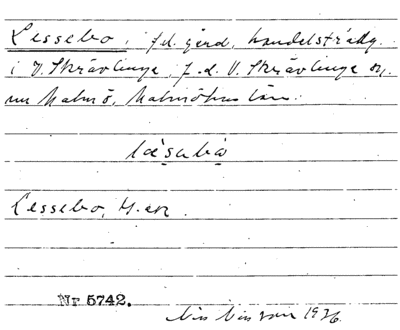 Lessebo, f.d. gård, handelsträdg.
i V. Skrävlinge, f.d. V. Skrävlinge sn,
nu Malmö, Malmöhus län.
läsabo
Lessebo, H. ek.
Nr 5742.
Nils Nilsson 1936.